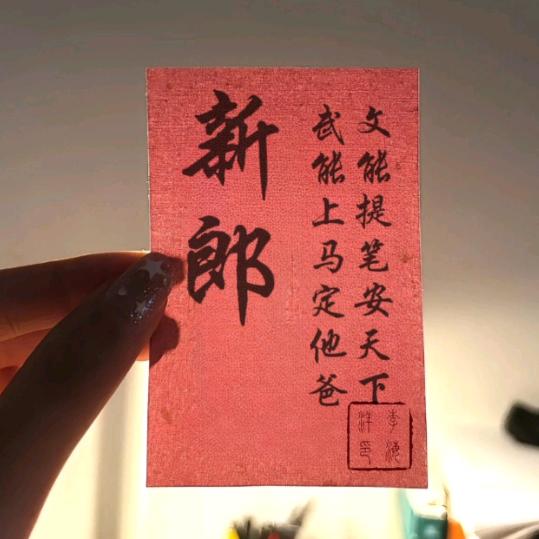 文能提笔安天下
武能上马定他爸
新郎